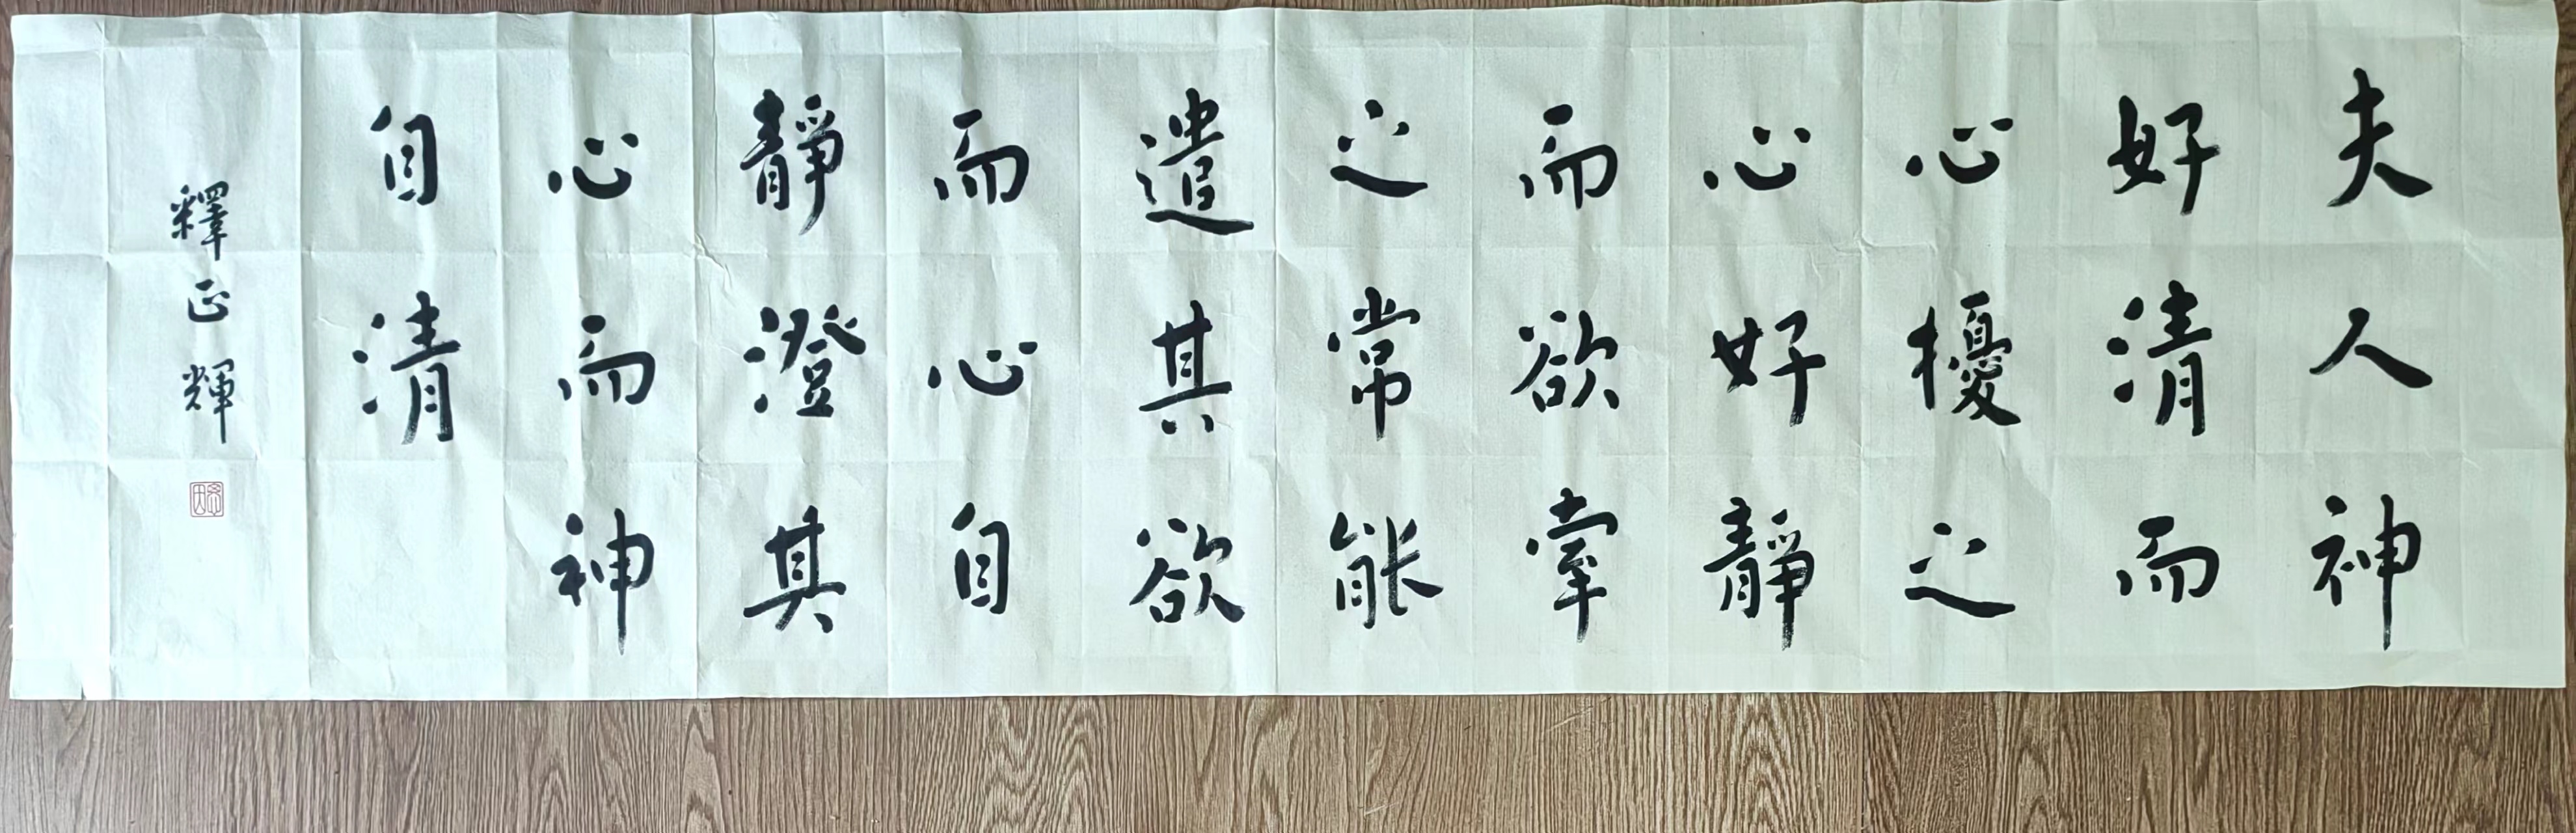 夫人神
好清而
心擾之
心好靜
而欲牽
之常能
遣其欲
而心自
靜澄其
心而神
自清
釋正輝